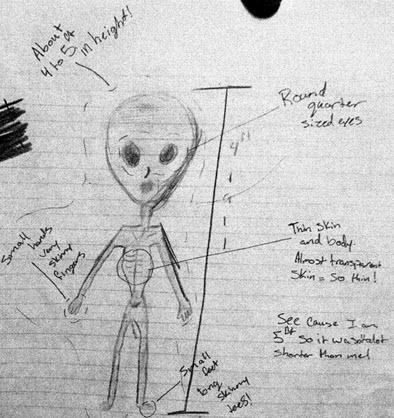 About
4 to 5 ft
in height!
Round
quarter
sized eyes
4'11
Small hands
very
skinny
fingers
Thin skin
and body.
Almost transparent
skin = so thin!
See cause I am
5 ft so it was
shorter than me!
Small
feet
long
skinny
toes!